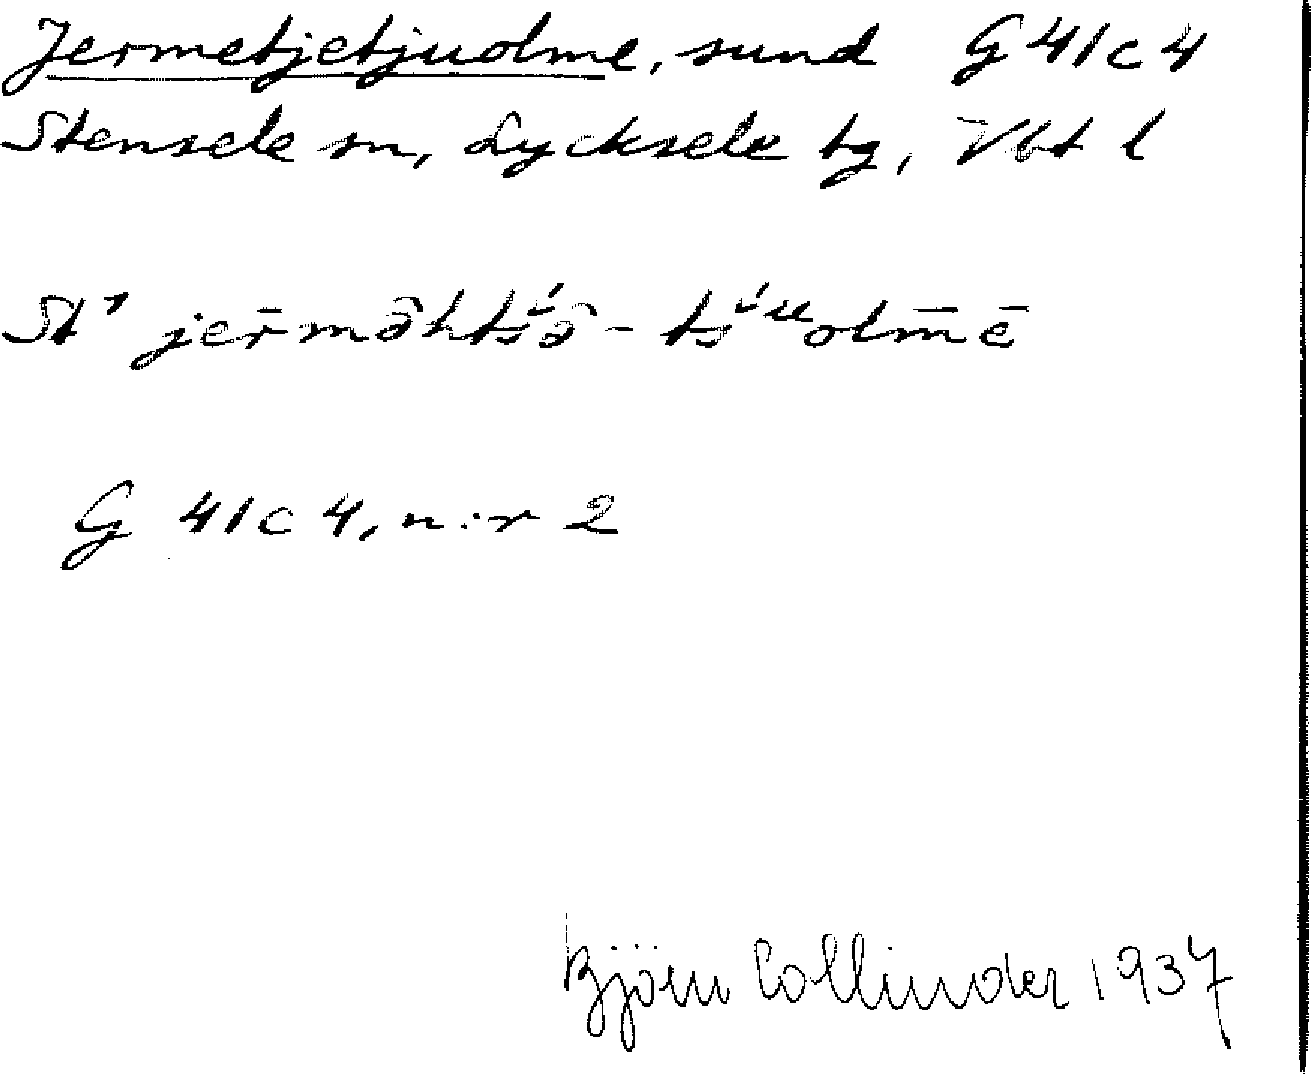 Jermetjetjuolme, sund G 41 c 4
Stensele sn, Lycksele tg, Vbt l
St' jer̄mə̑htś́ə̑ - tś́ᵘolm̄ē
G 41 c 4, n:r 2
Björn Collinder 1937